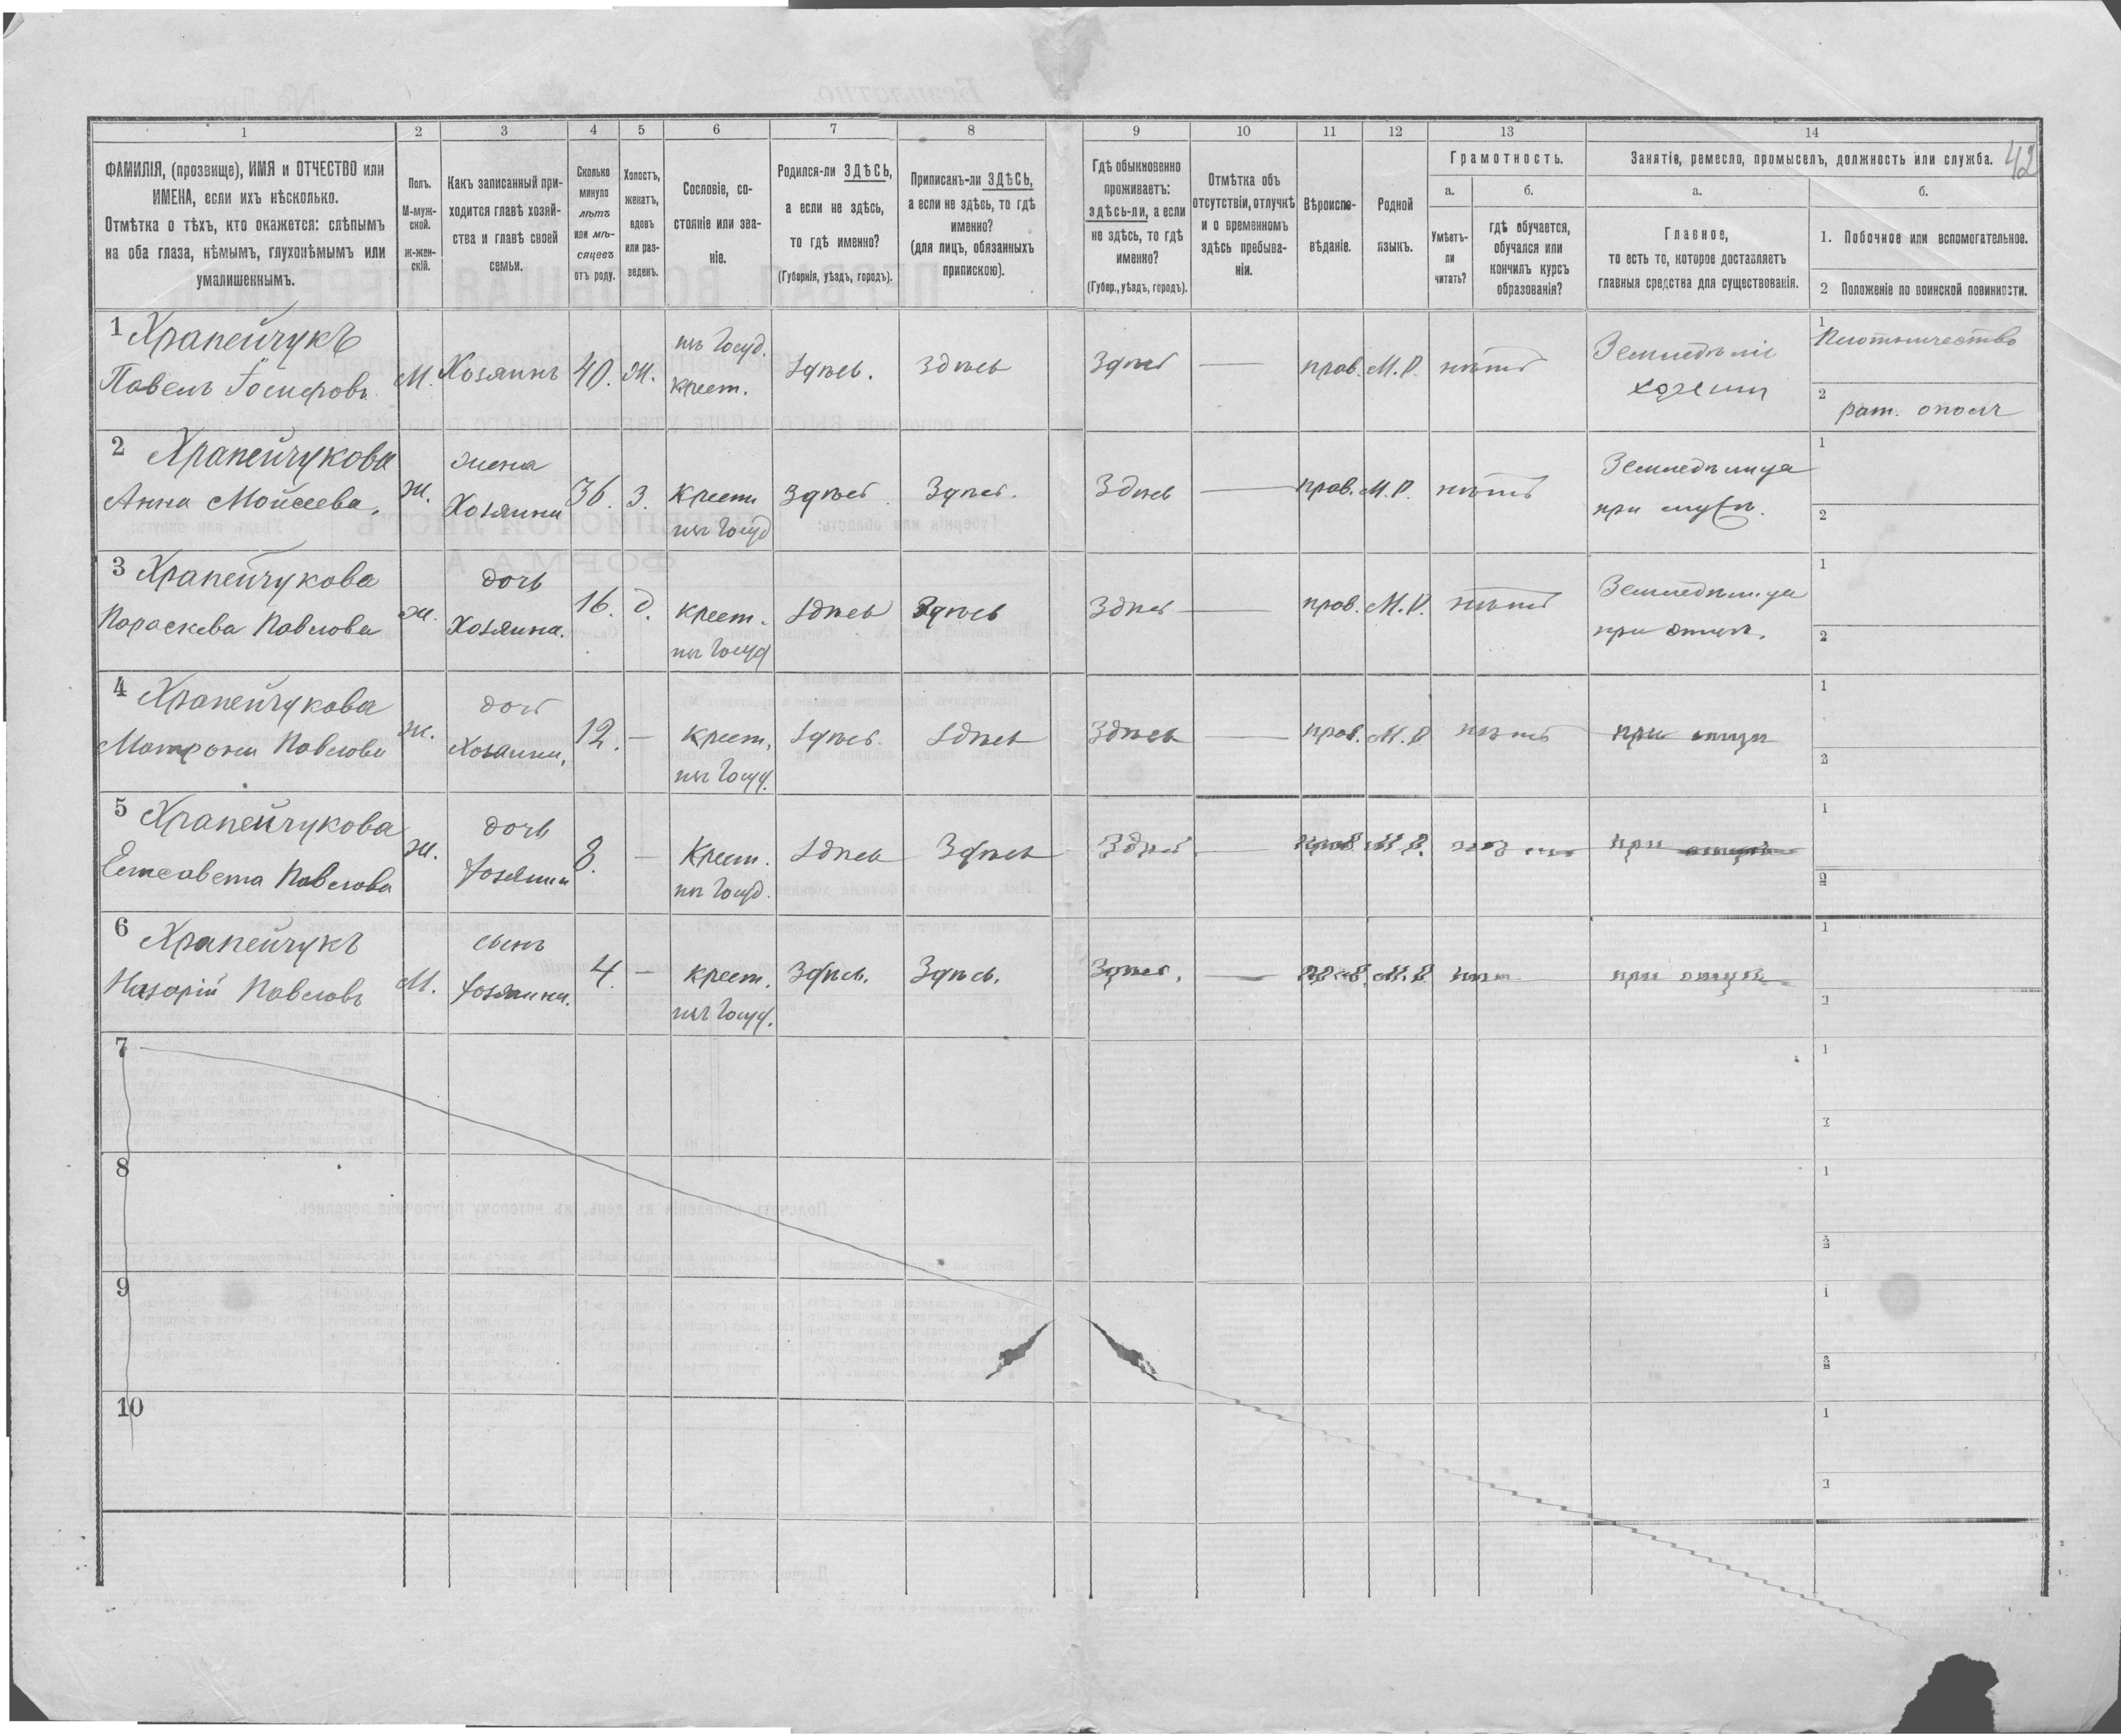 42
1 2 3 4 5 6 7 8 9 10 11 12 13 14
ФАМИЛІЯ, (прозвище), ИМЯ и ОТЧЕСТВО или
ИМЕНА, если ихъ нѣсколько.
Отмѣтка о тѣхъ, кто окажется: слѣпымъ
на оба глаза, нѣмымъ, глухонѣмымъ или
умалишеннымъ.
Полъ.
М-муж-
ской.
ж-жен-
скій.
Какъ записанный при-
ходится главѣ хозяй-
ства и главѣ своей
семьи.
Сколько
минуло
лѣтъ
или мѣ-
сяцевъ
отъ роду.
Холостъ,
женатъ,
вдовъ
или раз-
веденъ.
Сословіе, со-
стояніе или зва-
ніе.
Родился-ли ЗДѢСЬ,
а если не здѣсь,
то гдѣ именно?
(Губернія, уѣздъ, городъ).
Приписанъ-ли ЗДѢСЬ,
а если не здѣсь, то гдѣ
именно?
(для лицъ, обязанныхъ
припискою).
Гдѣ обыкновенно
проживаетъ:
здѣсь-ли, а если
не здѣсь, то гдѣ
именно?
(Губер., уѣздъ, городъ).
Отмѣтка объ
отсутствіи, отлучкѣ
и о временномъ
здѣсь пребыва-
ніи.
Вѣроиспо-
вѣданіе.
Родной
языкъ.
Грамотность.
а.
Умѣетъ-
ли
читать?
б.
гдѣ обучается,
обучался или
кончилъ курсъ
образованія?
Занятіе, ремесло, промыселъ, должность или служба.
а.
Главное,
то есть то, которое доставляетъ
главныя средства для существованія.
б.
1. Побочное или вспомогательное.
2 Положеніе по воинской повинности.
1 Храпейчукъ
Павелъ Іосифовъ
М. Хозяинъ 40. Ж.
изъ Госуд.
крест.
Здѣсь. Здѣсь Здѣсь — прав. М.Р. нѣтъ
Земледѣліе
хозяин
1 Плотничество
2 рат. ополч
2 Храпейчукова
Анна Мойсеева.
ж.
жена
Хозяина
36. З.
Крест.
из Госуд
Здѣсь Здѣсь. Здѣсь — прав. М.Р. нѣтъ
Земледѣлица
при мужѣ.
1
2
3 Храпейчукова
Параскева Павлова
ж.
дочь
Хозяина.
16. д.
крест.
из Госуд
Здѣсь Здѣсь Здѣсь — прав. М.Р. нѣтъ
Земледѣлица
при отцѣ.
1
2
4 Храпейчукова
Матрона Павлова
ж.
дочь
Хозаина,
12. —
крест.
из Госуд.
Здѣсь. Здѣсь Здѣсь — прав. М.Р. нѣтъ при отцѣ
1
2
5 Храпейчукова
Елисавета Павлова
ж.
дочь
хозяина
8. —
Крест.
из Госуд.
Здѣсь Здѣсь Здѣсь — прав. М.Р. нѣтъ при отцѣ
1
2
6 Храпейчукъ
Назарій Павловъ
М.
сынъ
хозяина.
4. —
крест.
из Госуд.
Здѣсь. Здѣсь. Здѣсь. — прав. М.Р. нѣт при отцѣ
1
2
7
1
2
8
1
2
9
1
2
10
1
2